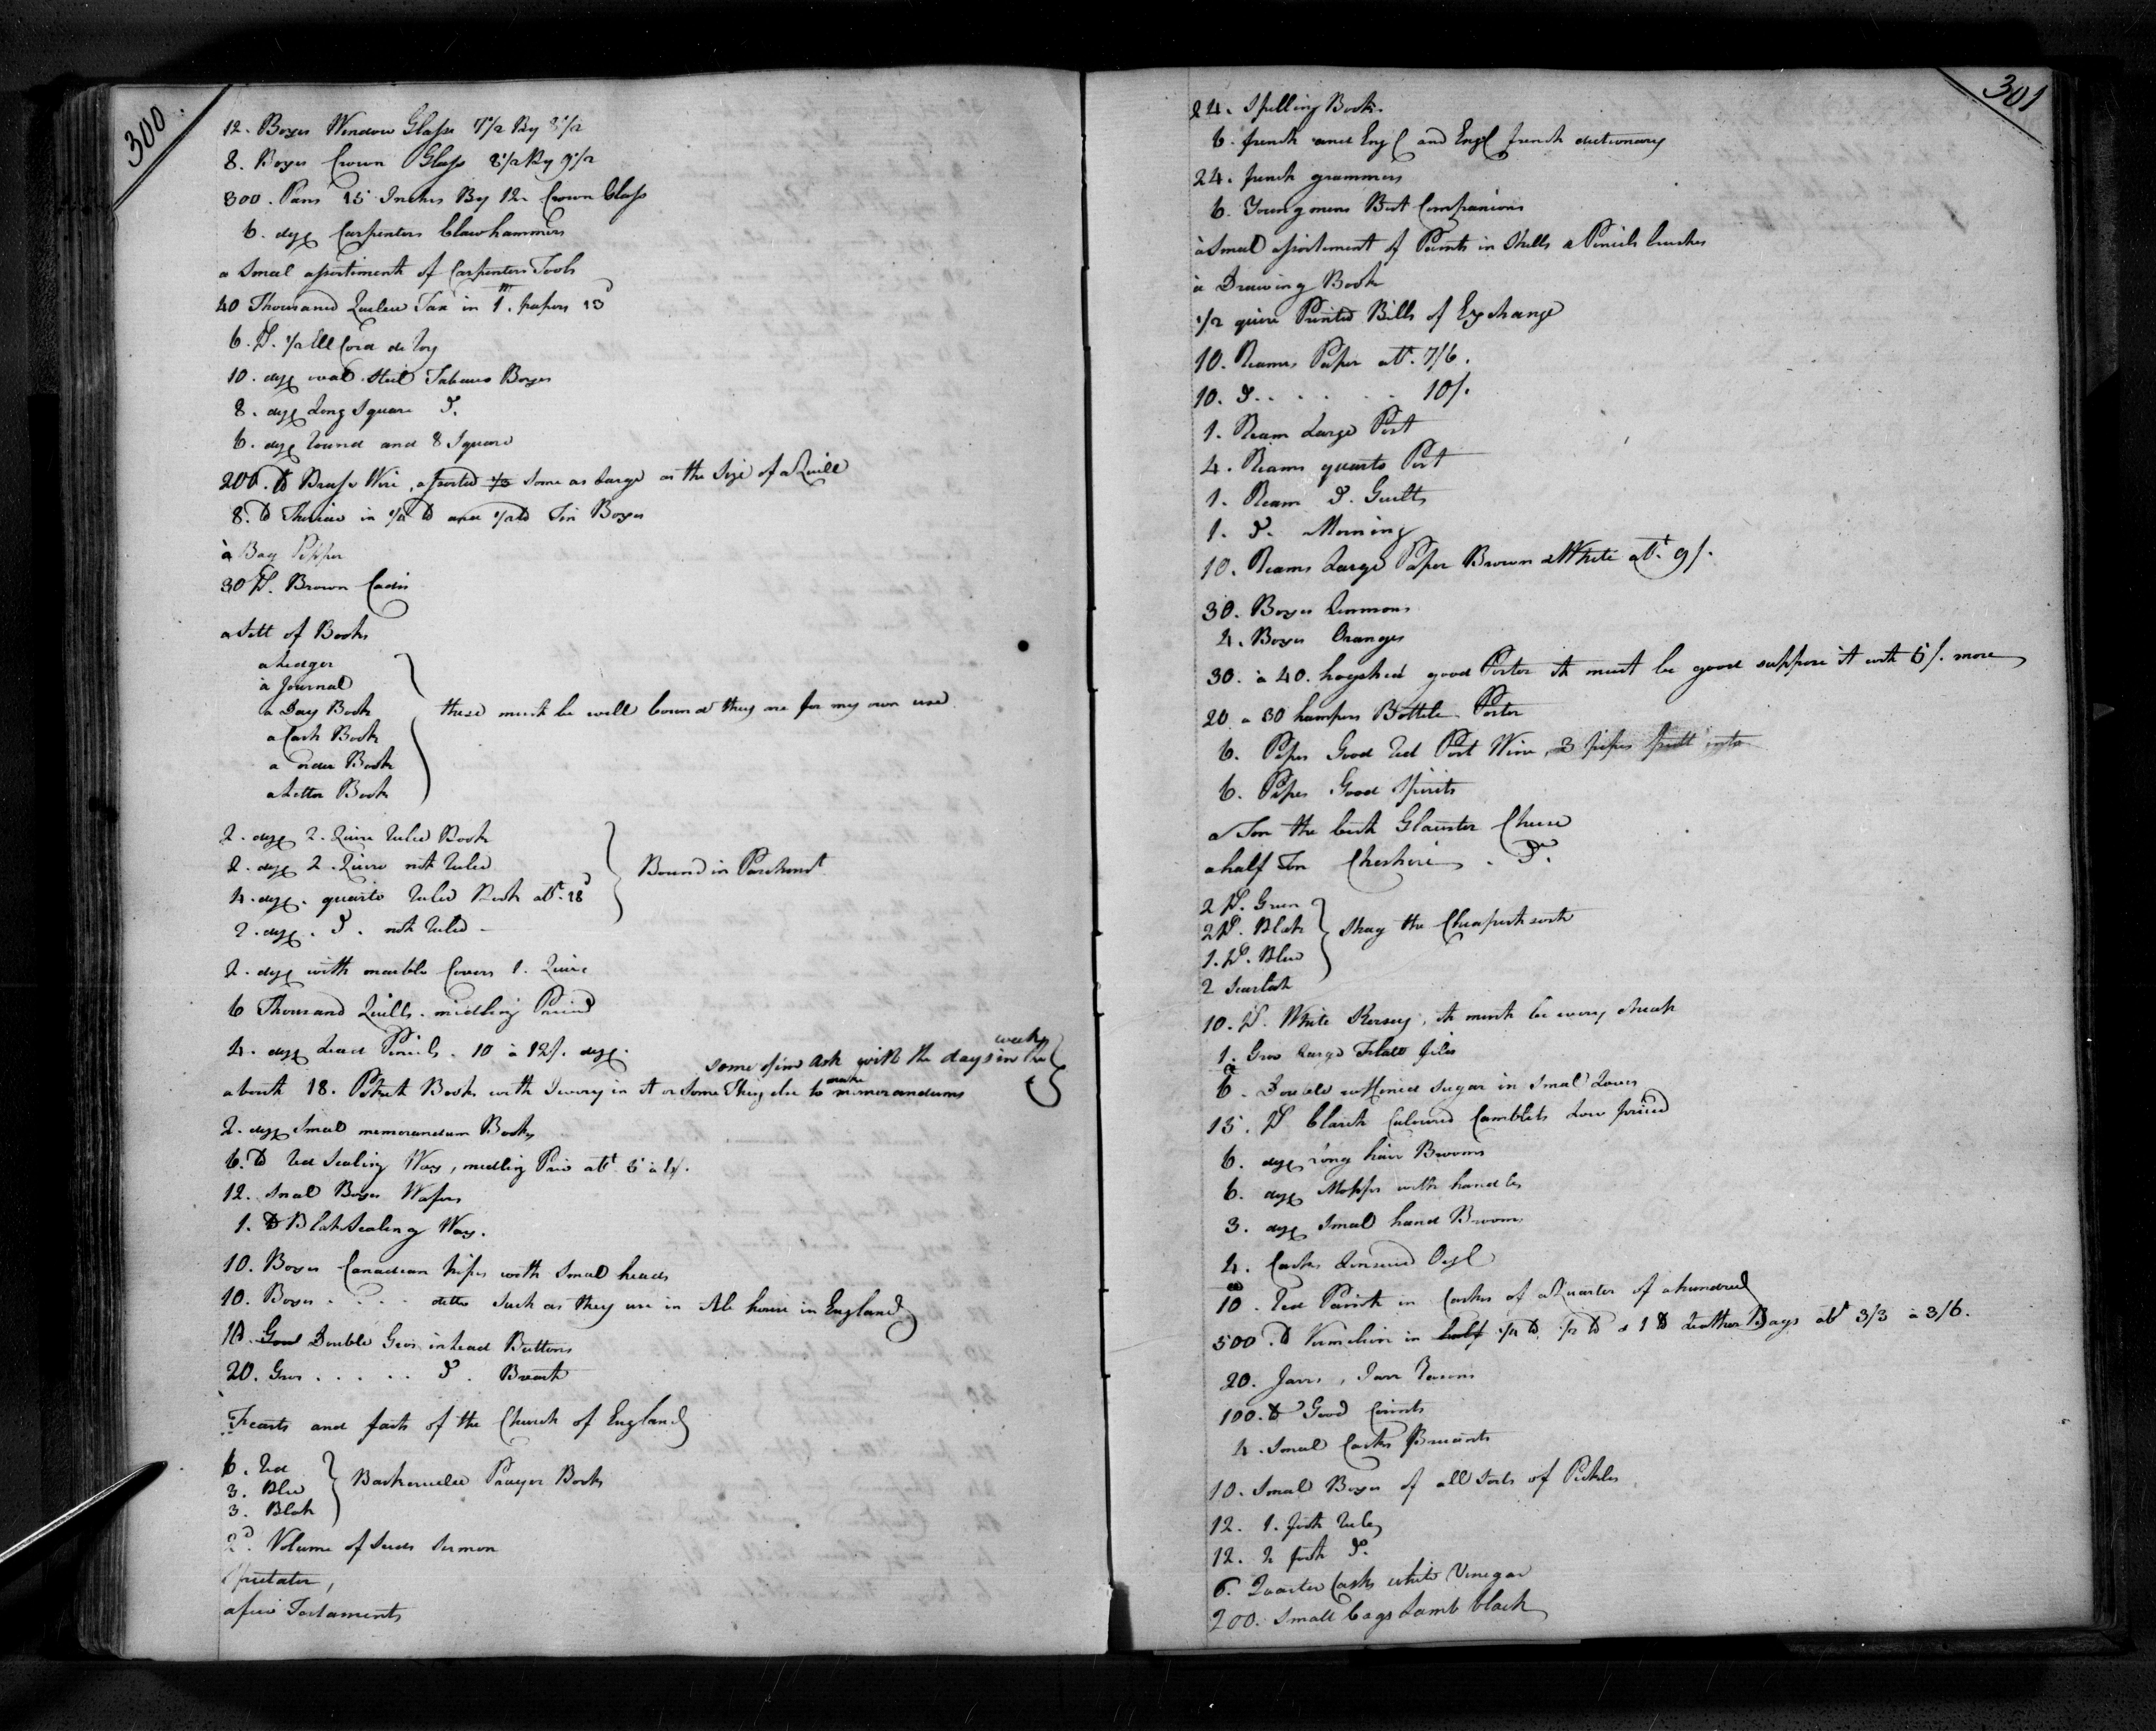 300
12. Boxes Window Glass 7 1/2 By 8 1/2
8. Boxes Crown Glass 8 1/2 By 9 1/2
300. Pans 15 Inches By 12 Crown Glass
6. doz Carpenters Clawhammers
a Small assortiment of Carpenters Tools
40 Thousand Tax in 1.m papers 13d
6. Ps. 1/2 Ell Cord de Roy
10. doz oval Steel Tabacco Boxes
8. doz Long Square Do.
6. doz Round and 8 Square
200. lb Brass Wire, assorted some as large as the Size of a Quill
8. lb Theriac in 1/4 lb and 1/2 lb Tin Boxes
à Bag Pepper
30 Ps. Brown Cadis
a Sett of Books
a Ledger
à Journal
a Day Book
a Cash Book
a order Book
a Letter Book
these must be well bound they are for my own use
2. doz 2. Quire Ruled Book
2. doz 2. Quire not Ruled
4. doz. quarto Ruled Book att. 18d
2. doz. Do. not Ruled
Bound in Parchmt
2. doz with marble Covers 1. Quire
6 Thousand Quills. midling Priced
4. doz Lead Pencils. 10 à 12/. doz.
some of im Ask with the days in the week
about 18. Poket Books with Ivory in it or Some Thing else to make memorandums
2. doz Small memorandum Books
6. lb Red Sealing Wax, midling Price att 3 à 4/.
12. Small Boxes Wafers
1. lb Blak Sealing Wax.
10. Boxes Canadian Pipes with Small heads
10. Boxes . . . . ditto Such as they use in Ale house in England
10. Good Double Gros inlead Buttons
20. Gros . . . . . Do. Breast
and faith of the Church of England
6. Red
3. Blue
3. Blak
Prayer Books
2d. Volume of Seeds Sermon
Spectator,
a few Testaments
301
24. Spelling Books.
6. french and Engl and Engl french dictionary
24. french grammers
6. Young mens Best Companions
à Small assortement of Paints in Shells & Pencils brushes
à Drawing Book
1/2 quire Printed Bills of Exchange
10. Reams Paper att. 7/6.
10. Do. . . . . . 10/.
1. Ream Large Post
4. Reams quarto Post
1. Ream Do. Guilt
1. Do. Morning
10. Reams Large Paper Brown & White att. 9/.
30. Boxes Lemmons
4. Boxes Oranges
30. à 40. hogshed good Porter it must be good suppose it cost 5/. more
20 a 30 hampers Bottele Porter
6. Pipes Good Red Port Wine, 3 pipes putt into
6. Pipes Good Spirits
a Ton the best Glauster Cheese
a half Ton Cheshire . Do.
2 Ps. Green
2 Ps. Blak
1. Ps. Blue
2 Scarlet
Shag the Cheapest sort
10. Ps. White Kersey, it must be very cheap
1. Gros Large Flatt files
6. Double reffined Sugar in Small Loves
15. Ps Claret Coloured Camblets Low priced
6. doz Long hair Brooms
6. doz Mopps with handles
3. doz Small hand Brooms
4. Casks Lenseed Oyl
10. Red Paint in Casks of a Quarter of a hundred
500. lb Vermelion in half 1/4 lb. 1/2 lb & 1 lb Leather Bags att 3/3 à 3/6.
20. Jarrs, Jarr Reasons
100. lb Good
4. Small Casks
10. Small Boxes of all Sorts of Pickles
12. 1. foot Rules
12. 2 foot Do.
6. Quarter Casks white Vinegar
200. Small bags Lamb black